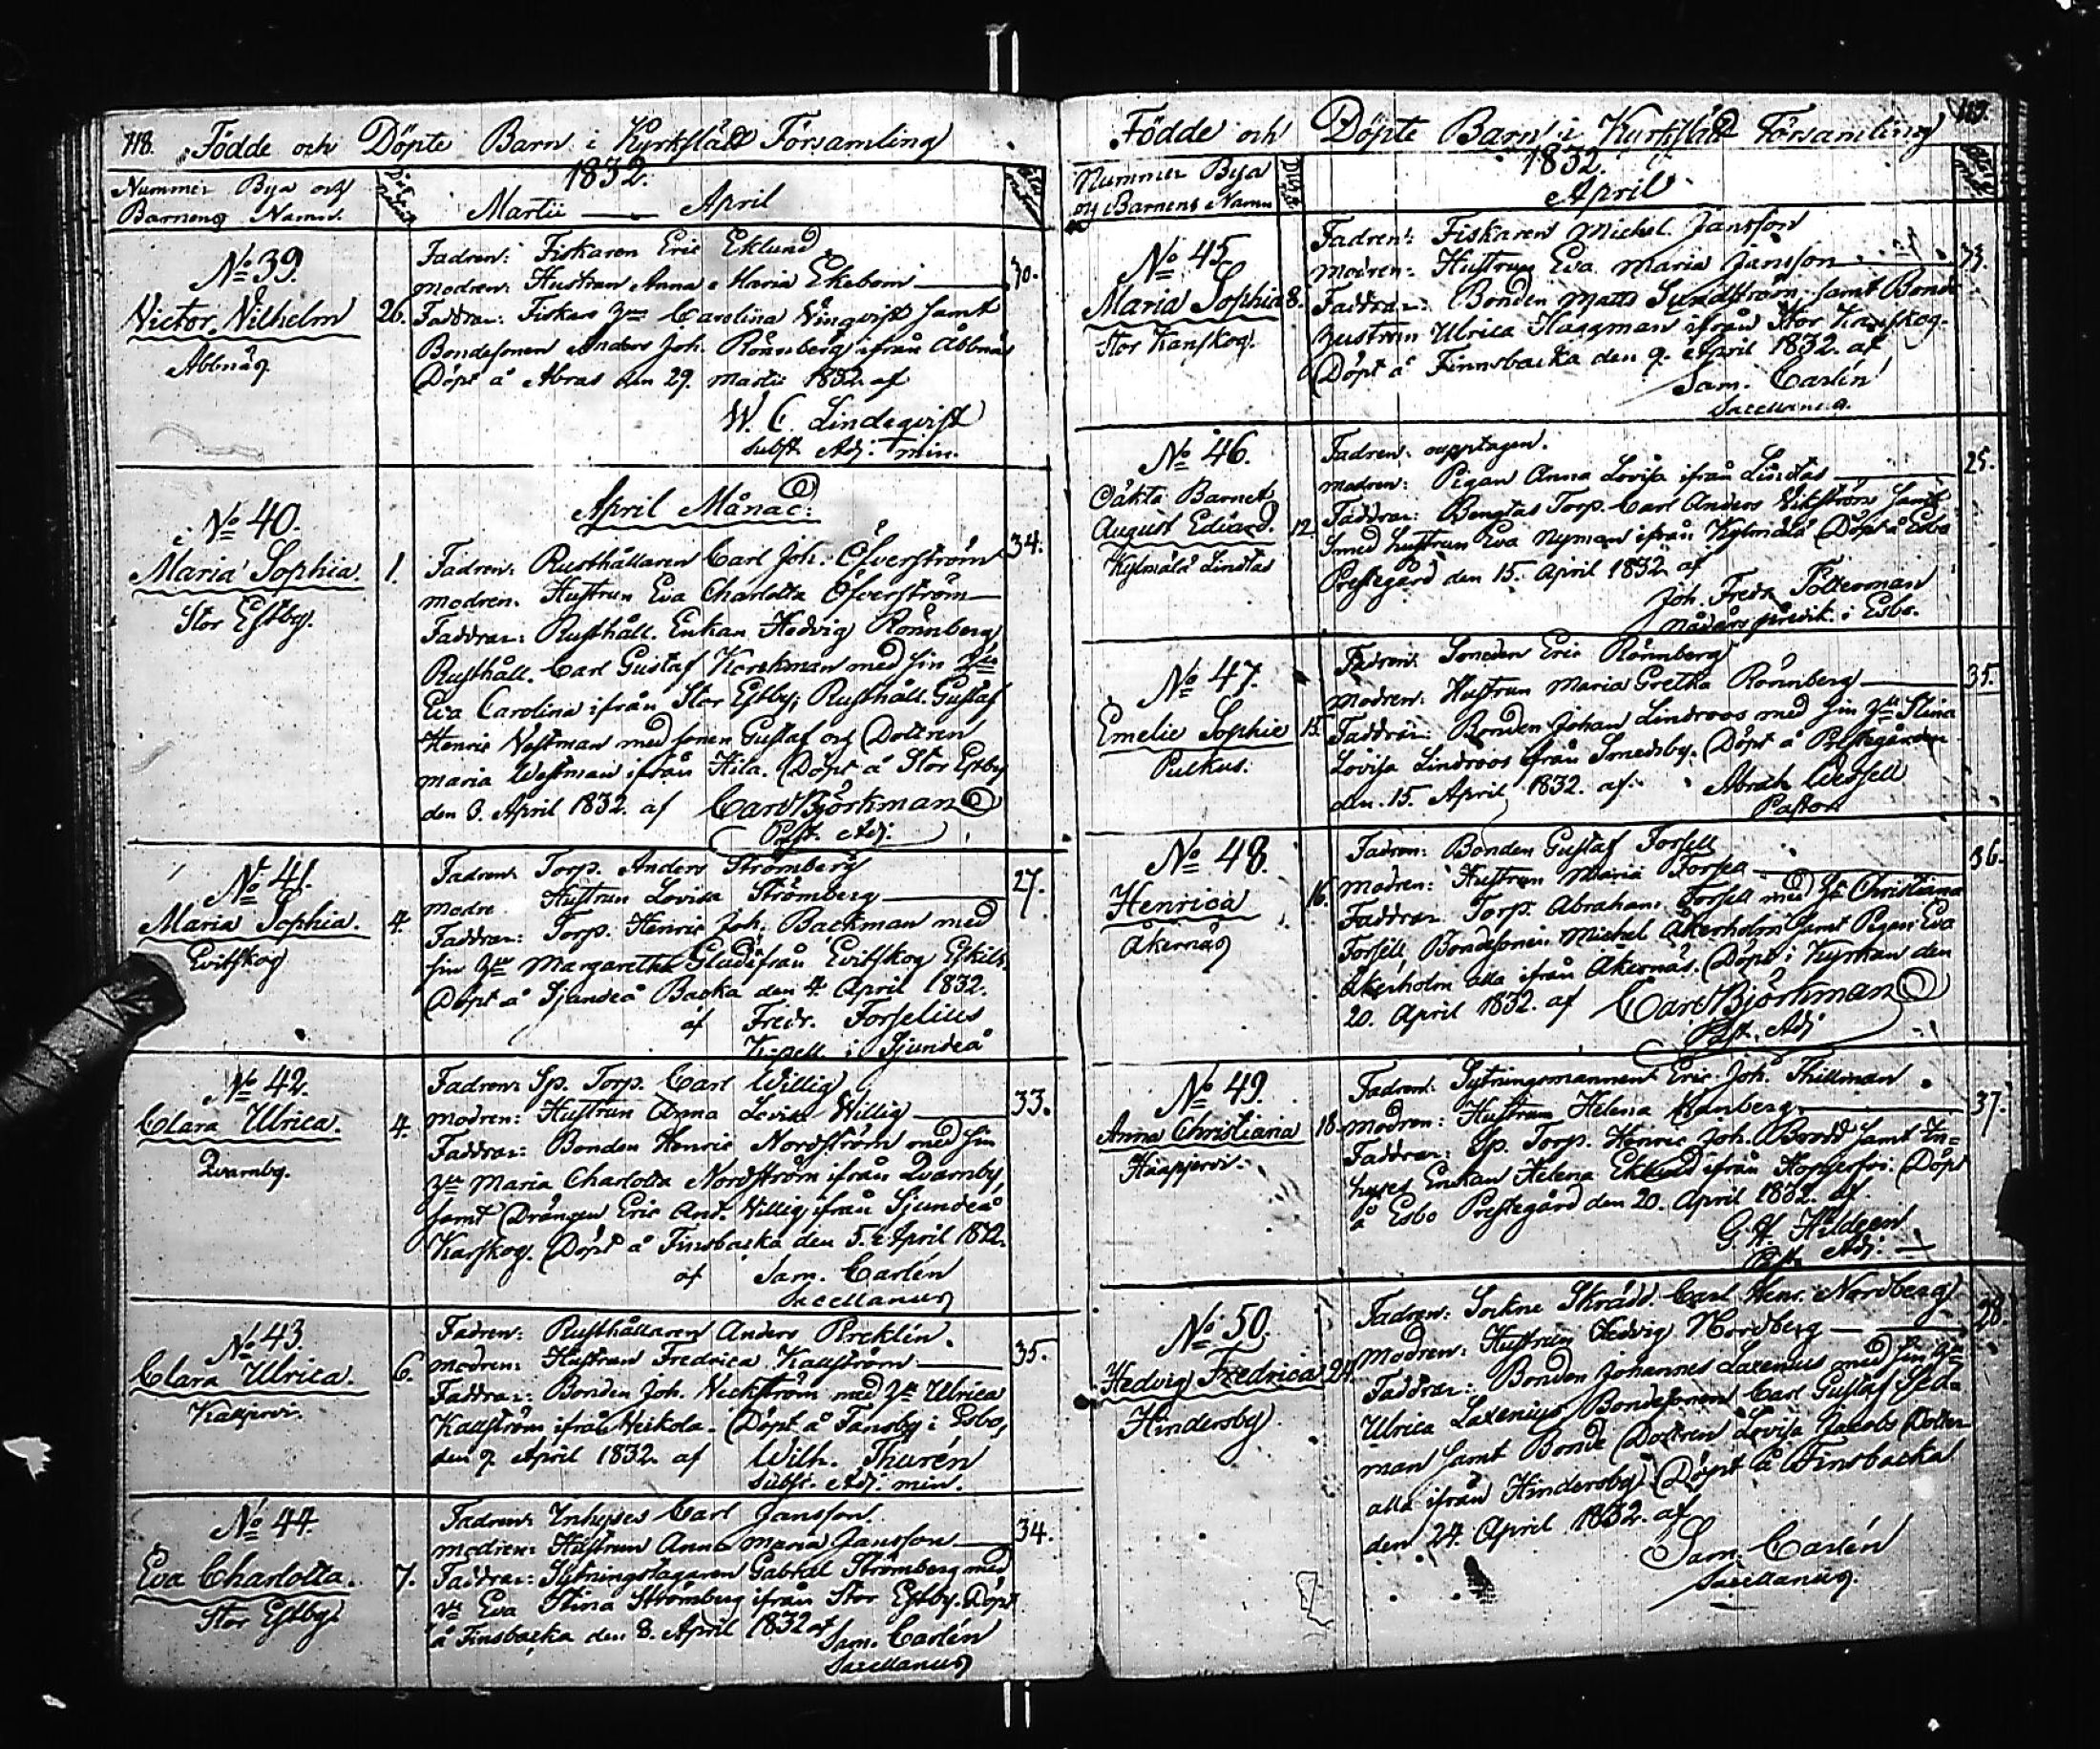 118. Födde och Döpte Barn i Kyrkslätt Församling
1832.
Nummer Bya och
Barnens Namn.
Martii — April
No 39.
Victor Vilhelm
Abbnäs
26.
Fadren: Fiskaren Eric Eklund
Modren: Hustrun Anna Maria Ekebom
30.
Faddrar: Fiskars Hu Carolina Vingvist samt
Bondesonen Anders Joh. Rönnberg ifrån Åbbnäs
Döpt å Abras den 29. Martii 1832. af
W. C. Lindeqvist
subst. Adj. Min.
April Månad:
No 40.
Maria Sophia.
Stor Estby.
1.
Fadren: Rusthållaren Carl Joh. Öfverström
34.
Modren: Hustrun Eva Charlotta Öfverström
Faddrar: Rusthåll. Enkan Hedvig Rönnberg
Rusthåll. Carl Gustaf Korckman med sin Hu
Eva Carolina ifrån Stor Estby; Rusthåll. Gustaf
Henric Vestman med sonen Gustaf och Dottren
Maria Westman ifrån Hila. Döpt å Stor Estby
den 3. April 1832. af Carl Björkman
Pst. Adj.
No 41.
Maria Sophia.
Evitskog
4.
Fadren: Torp. Anders Strömberg
Modre Hustrun Lovisa Strömberg
27.
Faddrar: Torp. Henric Joh. Backman med
sin Hu Margaretha Glad ifrån Evitskog Eskils.
Döpt å Sjundeå Backa den 4. April 1832.
af Fredr. Forselius
Kapell. i Sjundeå
No 42.
Clara Ulrica.
Qvarnby.
4.
Fadren: Sp. Torp. Carl Willig
Modren: Hustrun Anna Lovisa Willig
33.
Faddrar: Bonden Henric Nordström med sin
Hu Maria Charlotta Nordström ifrån Qvarnby,
samt Drängen Eric Ant. Willig ifrån Sjundeå
Karskog. Döpt å Finsbacka den 5. April 1832.
af Sam. Carlén
Sacellanus
No 43.
Clara Ulrica.
Kalljervi.
6.
Fadren: Rusthållaren Anders Preklin.
Modren: Hustrun Fredrica Kallström
35.
Faddrar: Bonden Joh. Veckström med Hu Ulrica
Kallström ifrån Veikola. Döpt å Fansby i Esbo,
den 7. April 1832. af Wilh. Thurén
Subst. Adj. min.
No 44.
Eva Charlotta.
Stor Estby.
7.
Fadren: Inhyses Carl Jansson.
Modren: Hustrun Anna Maria Jansson
34.
Faddrar: Sytningstagaren Gabriel Strömberg med
Hu Eva Stina Strömberg ifrån Stor Estby. Döpt
å Finsbacka den 8. April 1832 af Sam. Carlén
Sacellanus
119.
Födde och Döpte Barn i Kyrkslätt Församling
1832.
Nummer Bya
och Barnens Namn
April
No 45.
Maria Sophia
Stor Kanskog.
8.
Fadren: Fiskaren Michel Jansson
Modren: Hustrun Eva Maria Jansson
33.
Faddrar: Bonden Matts Sundström, samt Bonde
hustrun Ulrica Häggman ifrån Stor Kanskog.
Döpt å Finnsbacka den 9. April 1832. af
Sam. Carlén
Sacellanus.
No 46.
Oäkta Barnet
August Edvard.
Kylmälä Lindtas
12.
Fadren: oupptagen.
Modren: Pigan Anna Lovisa ifrån Lindtas
25.
Faddrar: Bengtas Torp. Carl Anders Vikström samt
Smed hustrun Eva Nyman ifrån Kylmälä Döpt å Esbo
Prestegård den 15. April 1832 af
Joh. Fredr. Polterman
Nådårs predik. i Esbo.
No 47.
Emelie Sophie
Pulkus.
15.
Fadren: Smeden Eric Rönnberg
Modren: Hustrun Maria Gretha Rönnberg
35.
Faddrar: Bonden Johan Lindroos med sin Hu Stina
Lovisa Lindroos ifrån Smedsby. Döpt å Prestegården
den 15. April 1832. af. Abrah Wessell
Pastor
No 48.
Henrica
Åkernäs
16.
Fadren: Bonden Gustaf Forsell
Modren: Hustrun Maria Forsell
36.
Faddrar Torp. Abraham Forsell med Hu Christiana
Forsell, Bondesonen Michel Åkerholm samt Pigan Eva
Åkerholm alla ifrån Åkernäs. Döpt i Kyrkan den
20. April 1832. af Carl Björkman
Pst. Adj
No 49.
Anna Christiana
Haapjervi.
18.
Fadren: Sytningsmannen Eric Joh. Thillman
Modren: Hustrun Helena Granberg
37.
Faddrar: Sp. Torp. Henric Joh. Brodd samt In-
hyses Enkan Helena Eklund ifrån Hopjerfvi. Döpt
å Esbo Prestegård den 20. April 1832. af.
G. H. Hildeen
Pst. Adj.
No 50.
Hedvig Fredrica
Hindersby
24.
Fadren: Sockne Skrädd. Carl Henr. Nordberg
Modren: Hustrun Hedvig Nordberg
28.
Faddrar: Bonden Johannes Laxenius med sin Hu
Ulrica Laxenius Bondesonen Carl Gustaf Sed-
man samt Bonde Dottren Lovisa Jacobs Dotter
alla ifrån Hindersby Döpt å Finsbacka
den 24. April 1832. af
Sam. Carlén
Sacellanus.